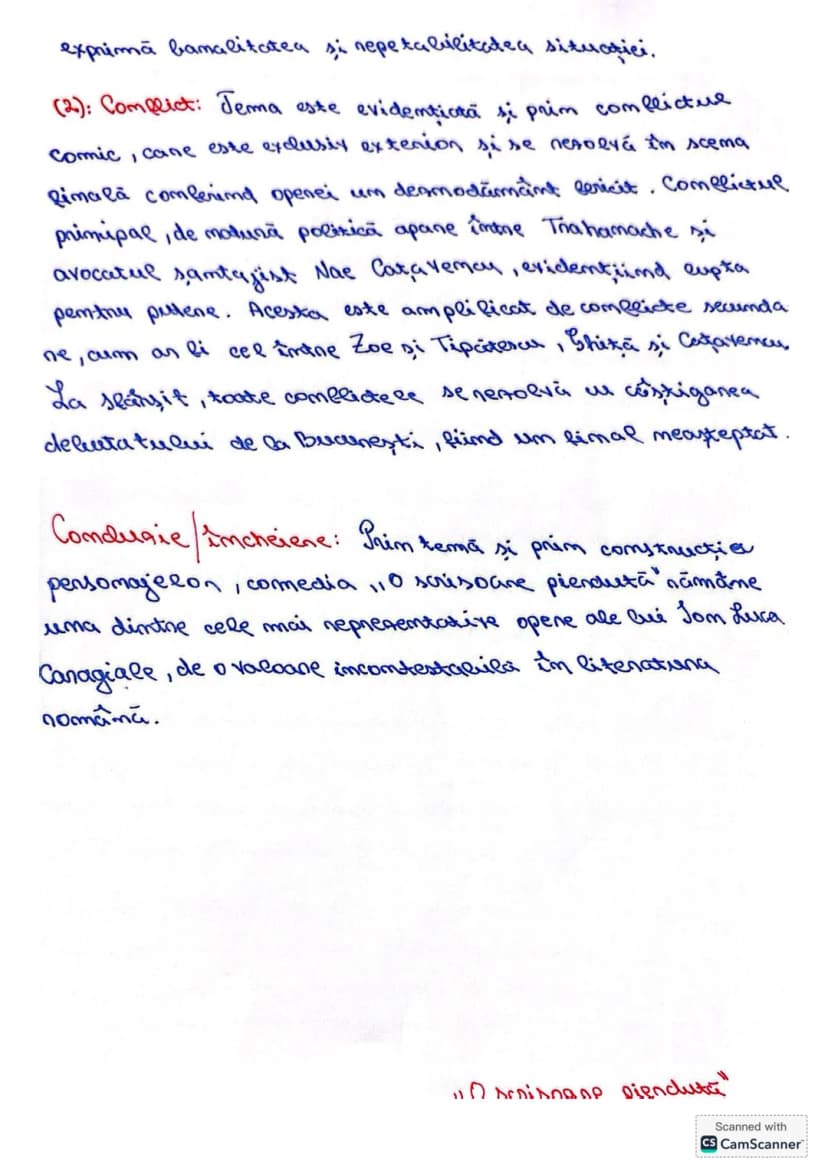 exprimă banalitatea și repetabilitatea situației.
(2): Conflict: Tema este evidențiată și prin conflictul
comic, care este exclusiv exterior și se rezolvă în scena
finală conferind operei un deznodământ fericit. Conflictul
principal, de natură politică apare între Trahanache și
avocatul șantajist Nae Cațavencu, evidențiind lupta
pentru putere. Acesta este amplificat de conflicte secunda
re, cum ar fi cel între Zoe și Tipătescu, Ghiță și Cațavencu.
La sfârșit, toate conflictele se rezolvă cu câștigarea
debutatului de la București, fiind un final neașteptat.
Concluzie/Încheiere: Prin temă și prin construcția
personajelor, comedia „O scrisoare pierdută" rămâne
una dintre cele mai reprezentative opere ale lui Ion Luca
Caragiale, de o valoare incontestabilă în literatura
română.
„O scrisoare pierdută"
Scanned with
CS CamScanner